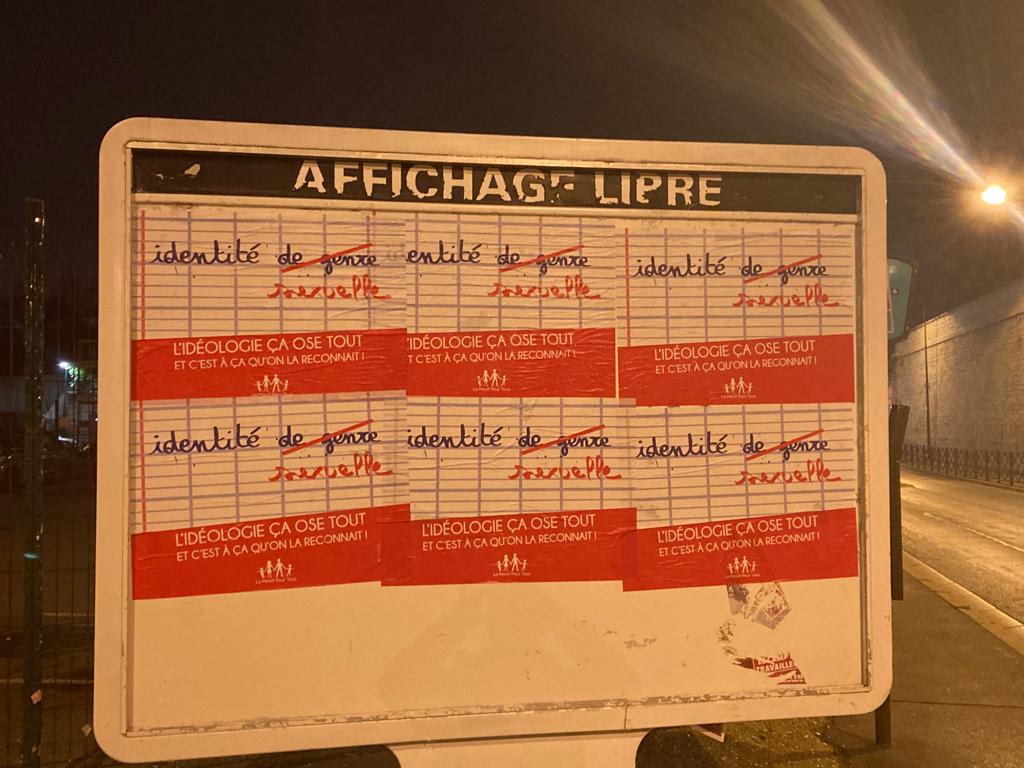 AFFICHAGE LIBRE
identité de genre
sexuelle
L'IDÉOLOGIE ÇA OSE TOUT
ET C'EST À ÇA QU'ON LA RECONNAIT !
La Manif Pour Tous
entité de genre
sexuelle
L'IDÉOLOGIE ÇA OSE TOUT
T C'EST À ÇA QU'ON LA RECONNAIT !
La Manif Pour Tous
identité de genre
sexuelle
L'IDÉOLOGIE ÇA OSE TOUT
ET C'EST À ÇA QU'ON LA RECONNAIT !
La Manif Pour Tous
identité de genre
sexuelle
L'IDÉOLOGIE ÇA OSE TOUT
ET C'EST À ÇA QU'ON LA RECONNAIT !
La Manif Pour Tous
identité de genre
sexuelle
L'IDÉOLOGIE ÇA OSE TOUT
ET C'EST À ÇA QU'ON LA RECONNAIT !
La Manif Pour Tous
identité de genre
sexuelle
L'IDÉOLOGIE ÇA OSE TOUT
ET C'EST À ÇA QU'ON LA RECONNAIT !
La Manif Pour Tous
TRAVAILLE